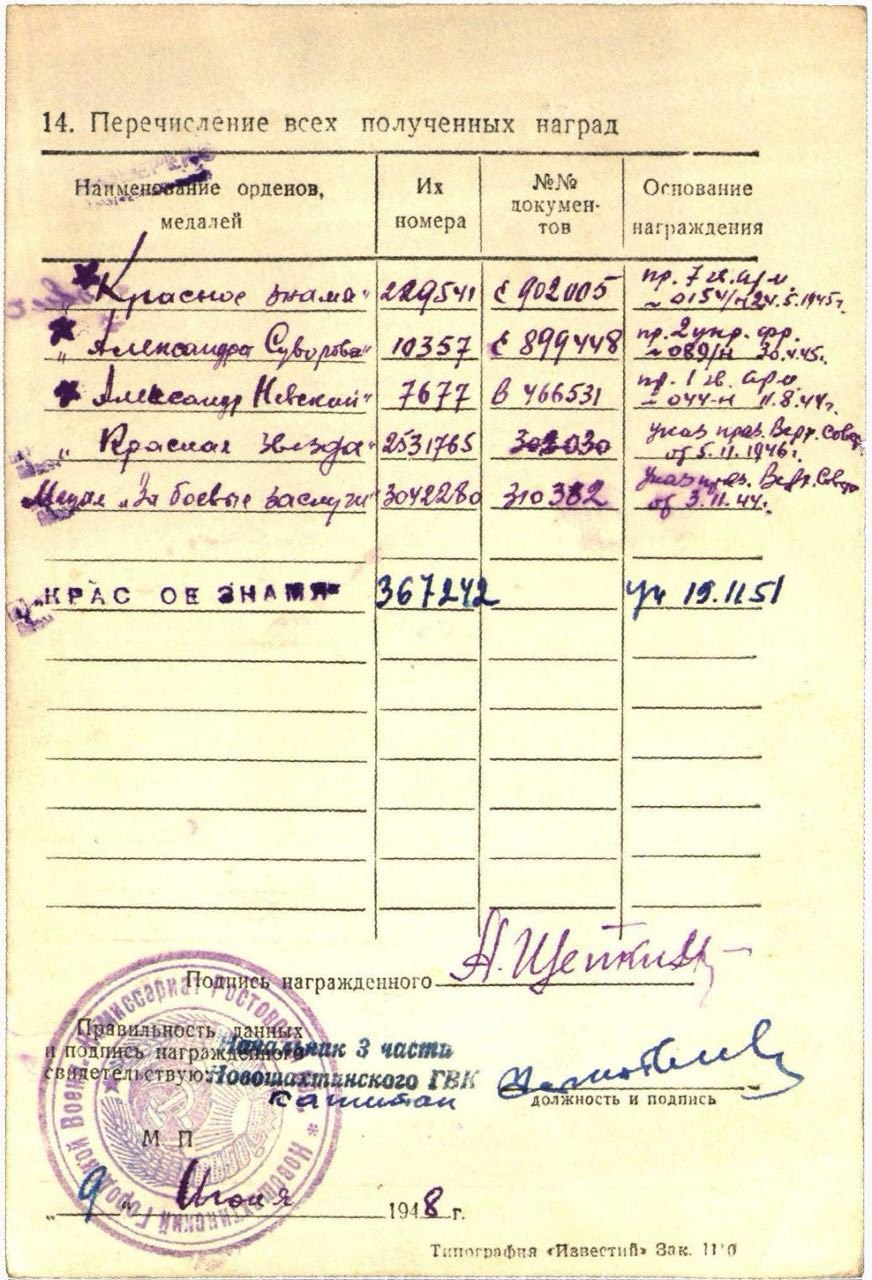 14. Перечисление всех полученных наград
Наименование орденов,
медалей
Их
номера
№№
докумен-
тов
Основание
награждения
„Красное знамя" 229541 Е 902005 пр. 7 гв. арм.
~ 0154/н 24.5.1945г.
„Александра Суворова" 10357 Е 899448 пр. 2 укр. фр.
~ 089/н 30.4.45.
Александр Невский" 7677 В 466531 пр. 1 гв. арм
~ 044-н 11.8.44г.
„Красная звезда" 2531765 303030 указ през. Верх. Совета
от 5.11.1946г.
Медаль „За боевые заслуги" 3042280 310382 указ през. Верх. Совета
от 3.11.44г.
„КРАС ОЕ ЗНАМЯ" 367242 Ук 19.11.51
Подпись награжденного А. Щеткин
Правильность данных
и подпись награжденного
свидетельствую:
Начальник 3 части
Новошахтинского ГВК
капитан
должность и подпись
М П
„9" Июля 1948 г.
Новошахтинский Городской Военный Комиссариат Ростовской
Типография «Известий» Зак. 1110